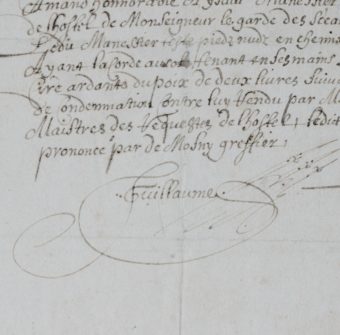 Amand honnorable
de lhostel de Monseigneur le garde des Scea
Ledit Manessier teste pieds nuds en chemis
Ayant la corde au col tenant en ses mains
Cire ardante du poix de deux livres suiva
de condemnation contre luy rendu par M
Maistres des Requestes de lhostel, Ledit
prononcé par de Mosny greffier,
Guillaume